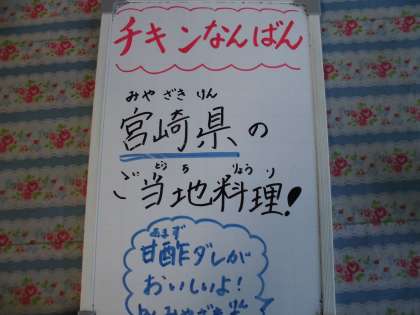 チキンなんばん
みや ざき けん
宮崎県の
とう ち りょう り
ご当地料理!
あまず
甘酢ダレが
おいしいよ!